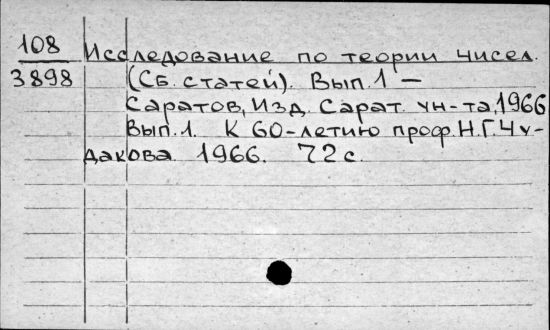 108
3898
Исследование по теории чисел.
(Сб. статей). Вып. 1 —
Саратов, Изд. Сарат. ун-та, 1966
Вып. 1. К 60-летию проф. Н.Г. Чу-
дакова 1966. 72 с.